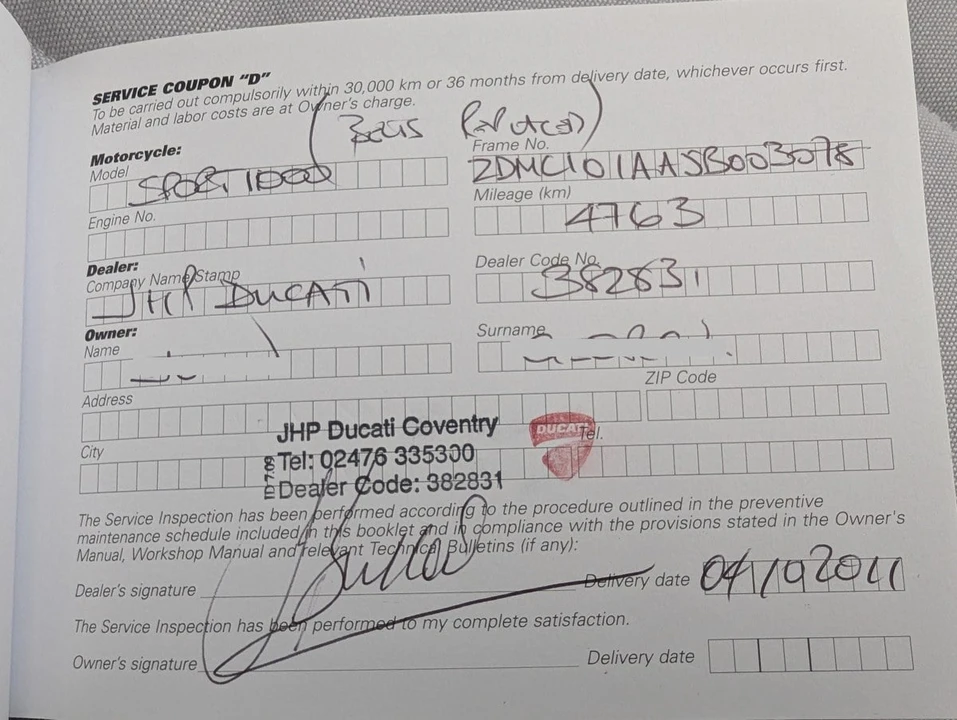 SERVICE COUPON "D"
To be carried out compulsorily within 30,000 km or 36 months from delivery date, whichever occurs first.
Material and labor costs are at Owner's charge.
Motorcycle:
Model
Frame No.
SPORT 1000
ZDMC101AASB003078
Engine No.
Mileage (km)
4763
Dealer:
Company Name/Stamp
Dealer Code No.
JHP DUCATI
382831
Owner:
Name
Surname
Address
ZIP Code
City
Tel.
JHP Ducati Coventry
Tel: 02476 335300
Dealer Code: 382831
DUCATI
The Service Inspection has been performed according to the procedure outlined in the preventive
maintenance schedule included in this booklet and in compliance with the provisions stated in the Owner's
Manual, Workshop Manual and relevant Technical Bulletins (if any):
Dealer's signature
Delivery date
04/10/2011
The Service Inspection has been performed to my complete satisfaction.
Owner's signature
Delivery date